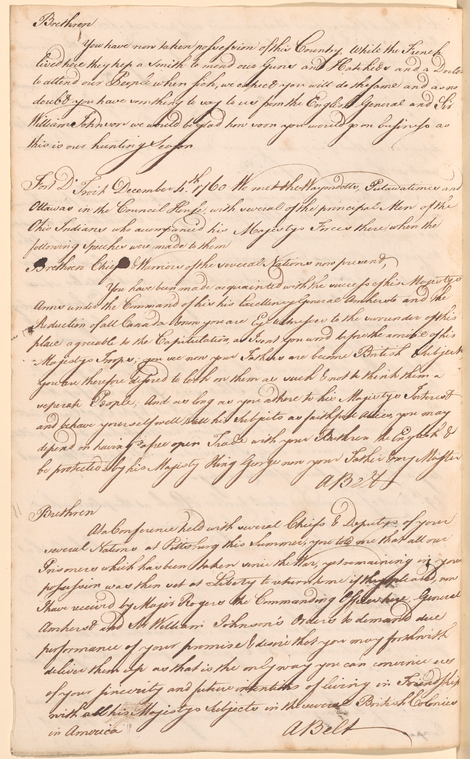 Brethren
You have now taken possession of this Country. While the French
lived here they kep a Smith to mend our Guns and Hatchets and a Doctor
to attend our People when sick, we expect you will do the same and as no
doubt you have something to say to us from the English General and Sir
William Johnson we would be glad how soon you would your business as
this is our hunting Season
Fort D'Troit December 4th 1760 We met the Wayondotts, Putawatimes and
Ottawas in the Council House, with several of the principal Men of the
Ohio Indians who acompanied his Majestys Forces there when the
following Speeches were made to them
Brethren Chiefs & Warriors of the several Nations now present,
You have been made acquainted with the success of his Majestys
Arms under the Command of his his Excellency General Amherst and the
Reduction of all Canada & now you are Eye witnesses to the surrender of this
place agreeable to the Capitulation as I sent you word before the arrival of his
Majestys Troops, you see now your Fathers are become British Subjects
you are therefore desired to look on them as such & not to think them a
seperate People, And as long as you adhere to his Majestys Interest
and behave yourselves well to all his Subjects as faithful allies, you may
depend on having a free open Trade with your Brethren the English &
be protected by his Majesty King George now your Father & my Master
A Belt
Brethren
At a Conference held with several Chiefs & Deputys of your
several Nations at Pittsburg this Summer, you told me that all our
Prisoners which has been taken since the War, yet remaining in your
possession was then set at Liberty to return home if they pleased, now
I have received by Major Rogers the Commanding Officer here General
Amherst and Sir William Johnson's Orders to demand due
performance of your promise & desire that you may forthwith
deliver them up as that is the only way you can convince us
of your sincerity and future intentions of living in Friendship
with all his Majestys Subjects in the several British Colonies
in America A Belt